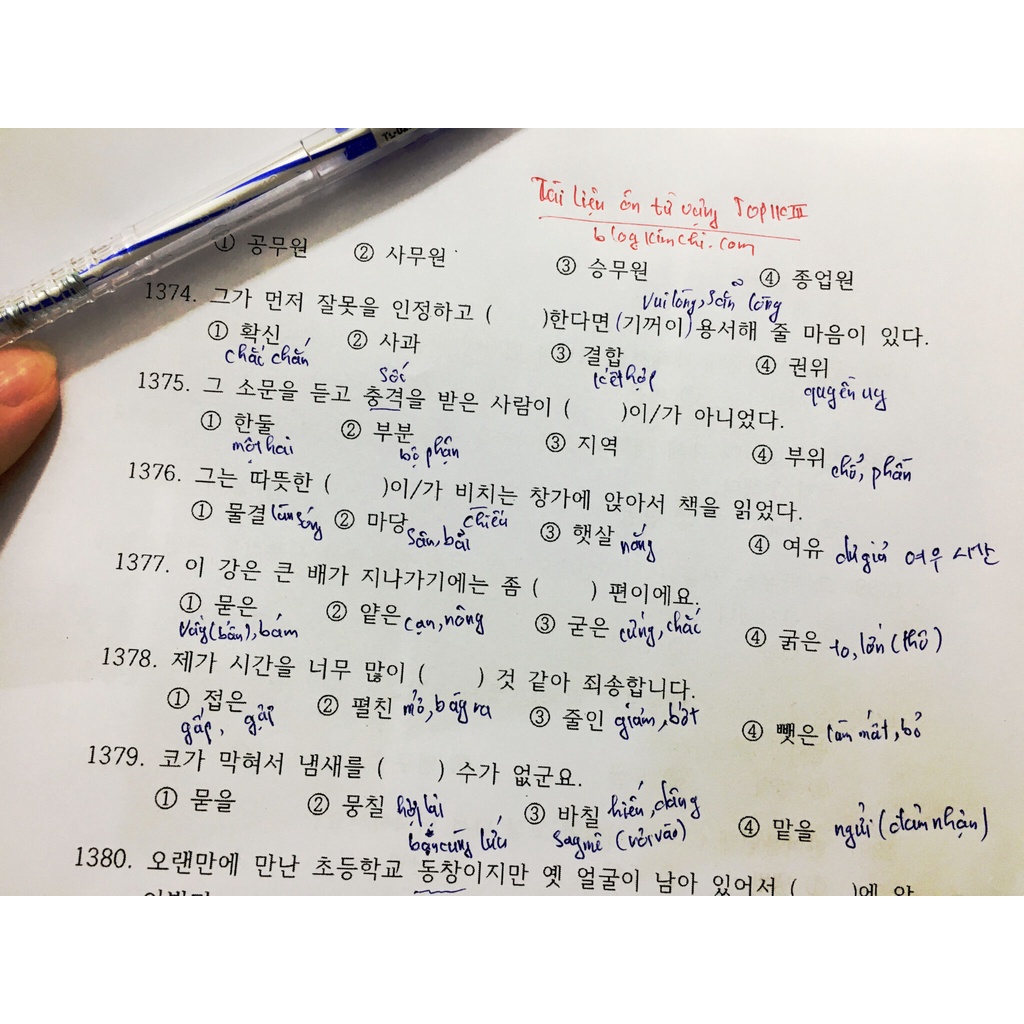 TL-02
Tài liệu ôn từ vựng TOPIK II
blogkimchi.com
① 공무원 ② 사무원 ③ 승무원 ④ 종업원
vui lòng, sẵn lòng
1374. 그가 먼저 잘못을 인정하고 ( )한다면 (기꺼이) 용서해 줄 마음이 있다.
① 확신 ② 사과 ③ 결합 ④ 권위
chắc chắn kết hợp quyền uy
sốc
1375. 그 소문을 듣고 충격을 받은 사람이 ( )이/가 아니었다.
① 한둘 ② 부분 ③ 지역 ④ 부위 chỗ, phần
một hai bộ phận
1376. 그는 따뜻한 ( )이/가 비치는 창가에 앉아서 책을 읽었다.
chiếu
① 물결 làn sóng ② 마당 sân, bãi ③ 햇살 nắng ④ 여유 dư giả 여우 시간
1377. 이 강은 큰 배가 지나가기에는 좀 ( ) 편이에요.
① 묻은 ② 얕은 cạn, nông ③ 굳은 cứng, chắc ④ 굵은 to, lớn (thô)
vấy (bẩn), bám
1378. 제가 시간을 너무 많이 ( ) 것 같아 죄송합니다.
① 접은 ② 펼친 mở, bày ra ③ 줄인 giảm, bớt ④ 뺏은 làm mất, bỏ
gấp, gập
1379. 코가 막혀서 냄새를 ( ) 수가 없군요.
① 묻을 ② 뭉칠 hợp lại ③ 바칠 hiến, dâng ④ 맡을 ngửi (đảm nhận)
say mê (vùi vào)
1380. 오랜만에 만난 초등학교 동창이지만 옛 얼굴이 남아 있어서 ( )에 알